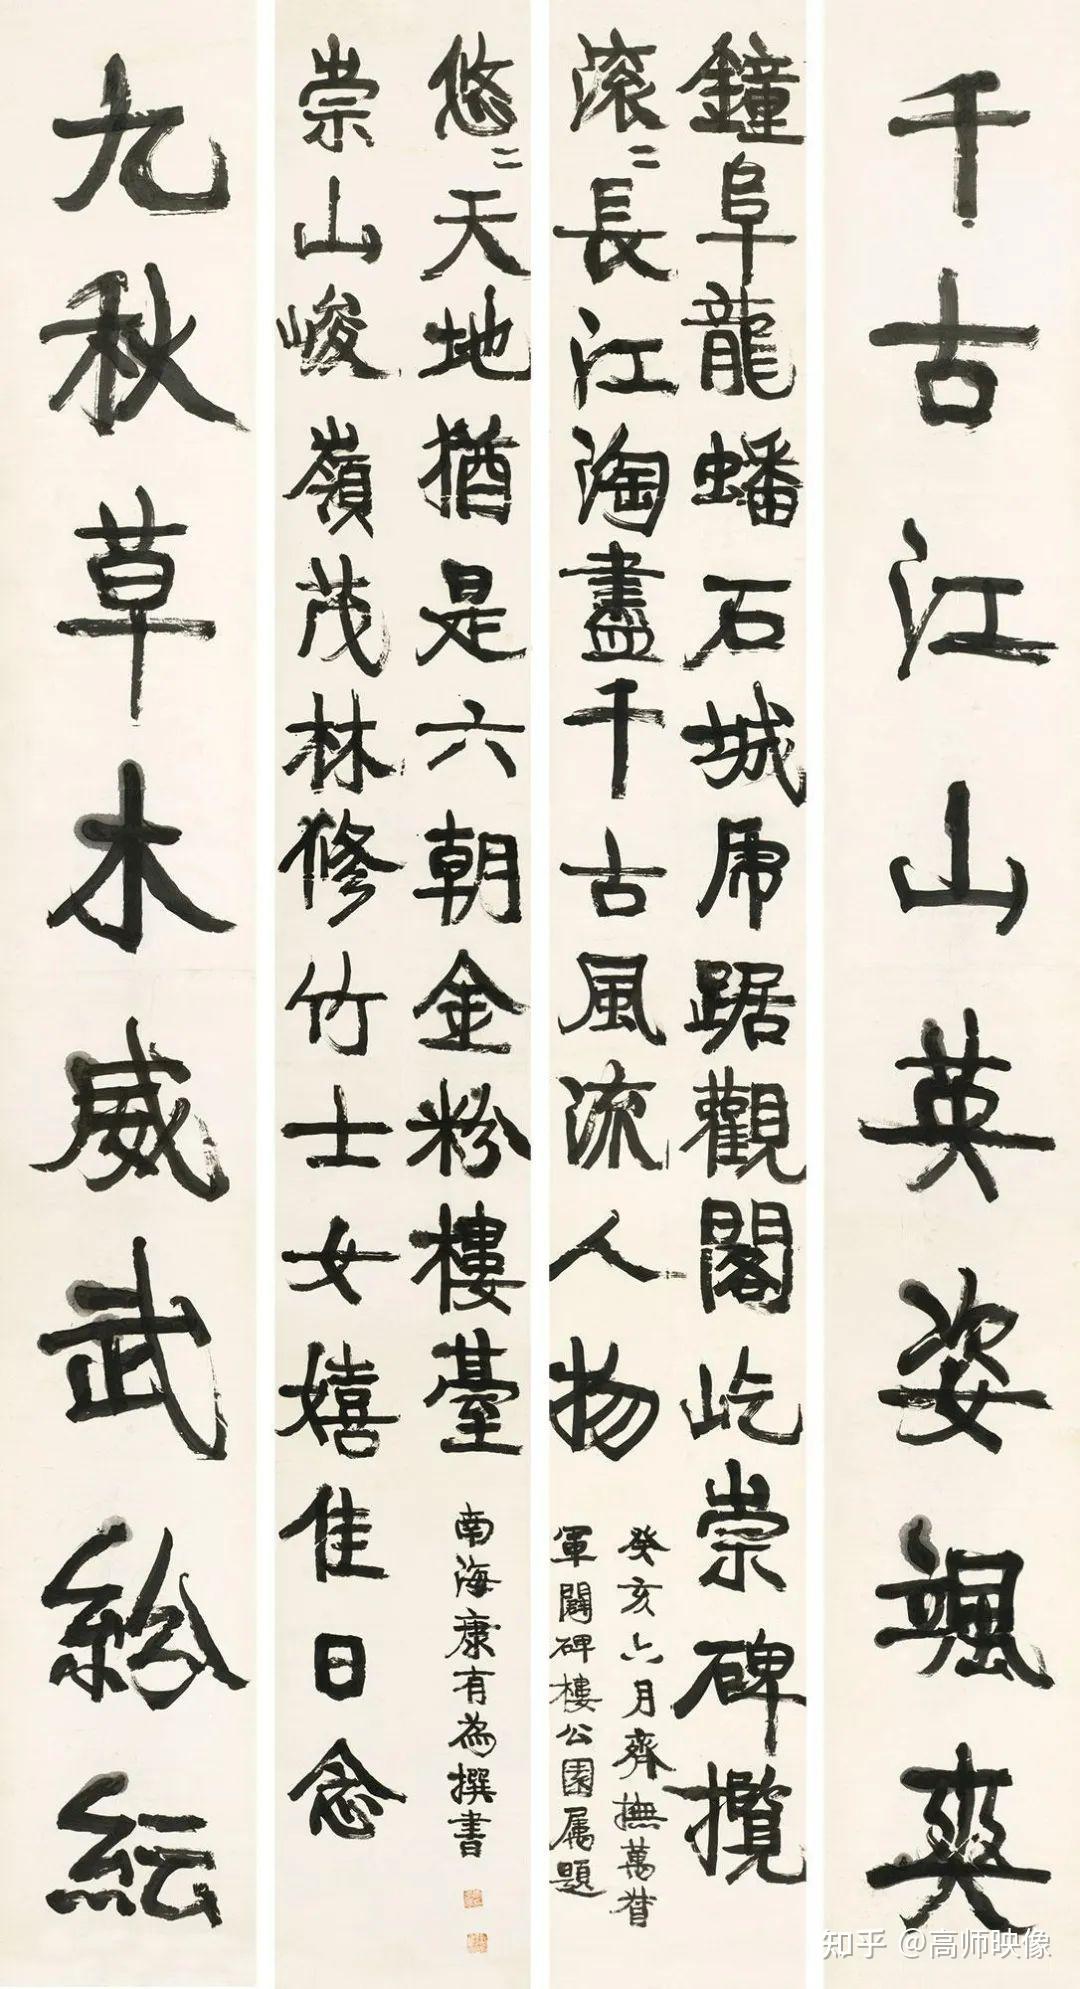 千古江山英姿颯爽
鐘阜龍蟠石城虎踞觀閣屹崇碑攬
滚〻長江淘盡千古風流人物
癸亥六月齊撫萬督
軍闢碑樓公園属題
悠〻天地猶是六朝金粉樓臺
崇山峻嶺茂林修竹士女嬉佳日念
南海康有為撰書
九秋草木威武紛紜
知乎 @高师映像